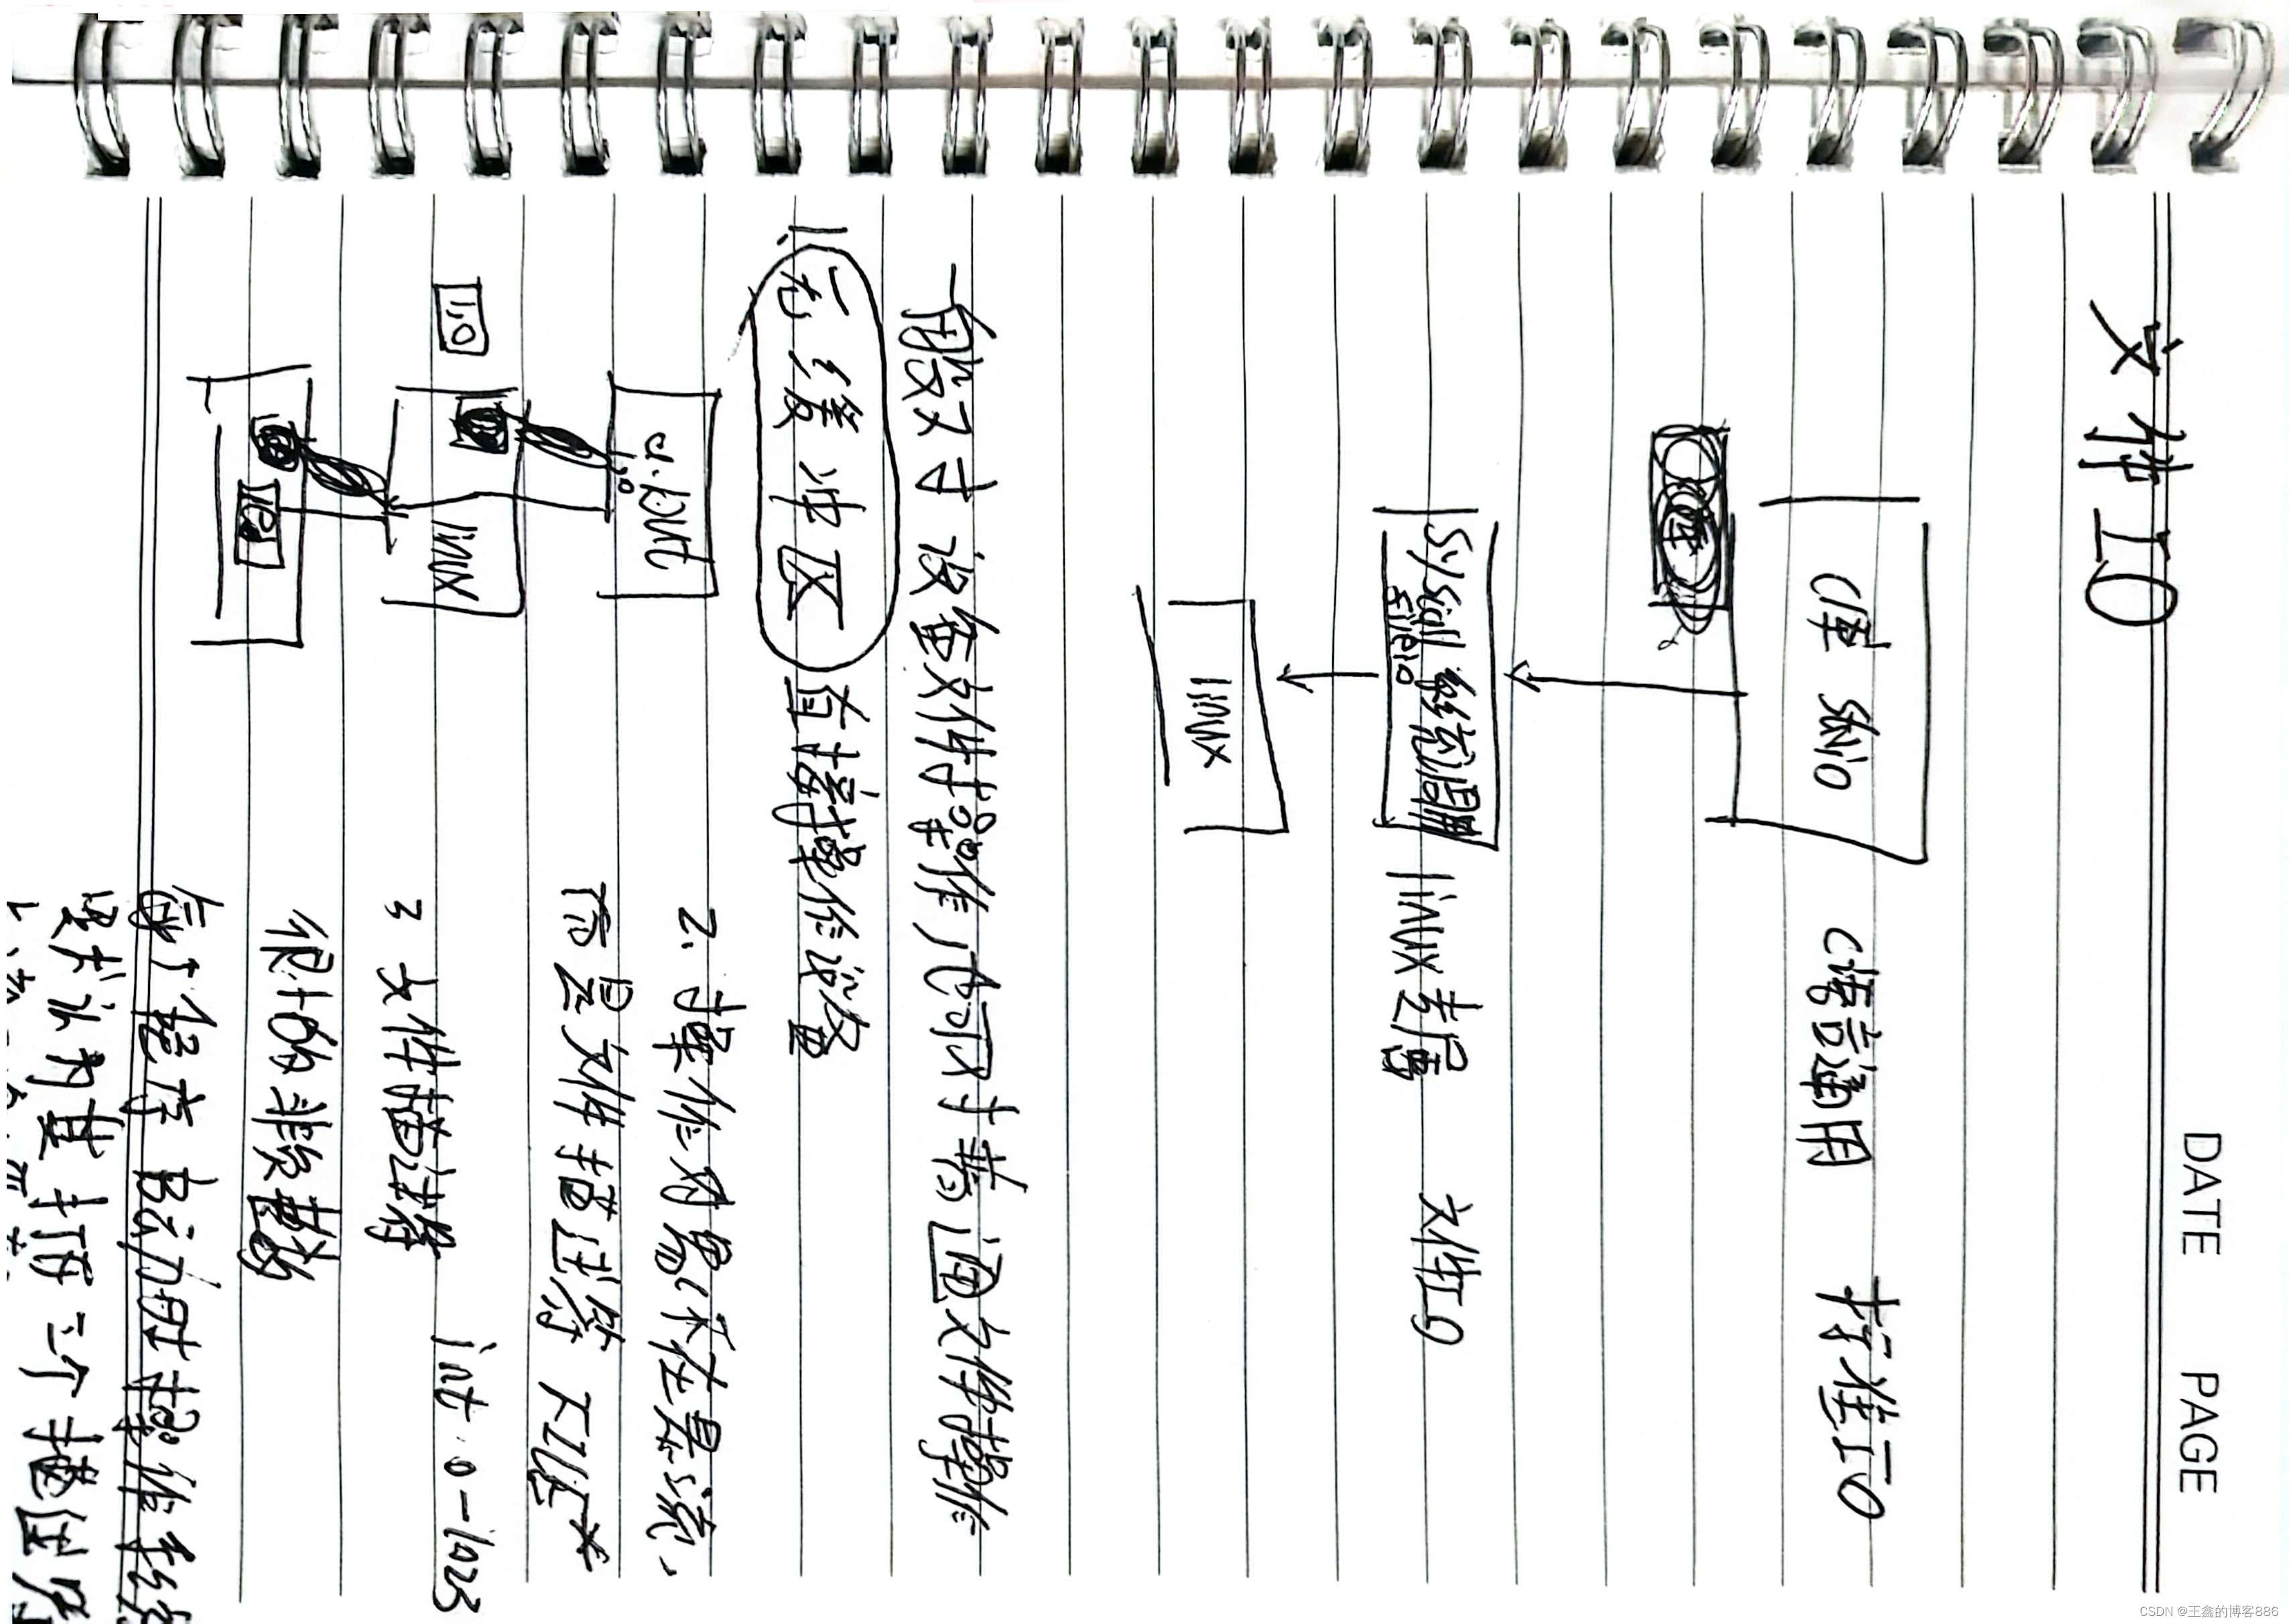 DATE PAGE
文件IO
C库 stdio C语言通用 标准IO
syscall 系统调用 linux专属 文件IO
fileio
linux
一般对于设备文件操作 可对普通文件操作
1. 无缓冲区 直接操作设备
a.txt
1,0
2. 操作对象不在是流,
linux
而是文件描述符 FILE*
1,0
3 文件描述符 int 0-1023
很小的非负整数
每个程序启动时操作系统
默认为其打开三个描述符
CSDN @王鑫的博客886